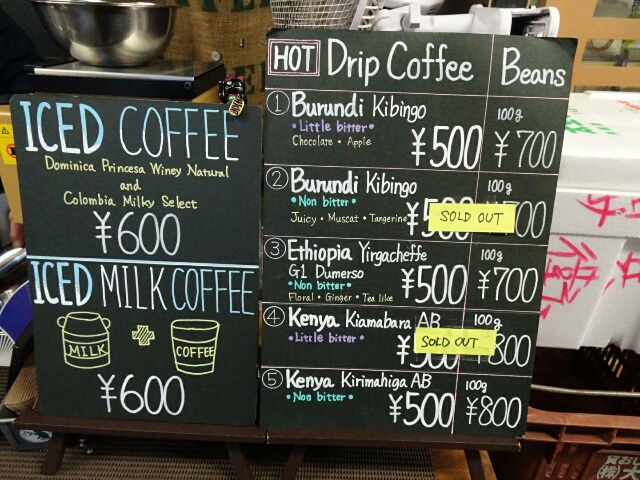 ICED COFFEE
Dominica Princesa Winey Natural
and
Colombia Milky Select
¥600
ICED MILK COFFEE
MILK
COFFEE
¥600
HOT Drip Coffee
Beans
① Burundi Kibingo
• Little bitter •
Chocolate • Apple
¥500
100g
¥700
② Burundi Kibingo
• Non bitter •
Juicy • Muscat • Tangerine
SOLD OUT
100g
③ Ethiopia Yirgacheffe
G1 Dumerso
• Non bitter •
Floral • Ginger • Tea like
¥500
100g
¥700
④ Kenya Kiamabara AB
• Little bitter •
SOLD OUT
100g
⑤ Kenya Kirimahiga AB
• Non bitter •
¥500
100g
¥800